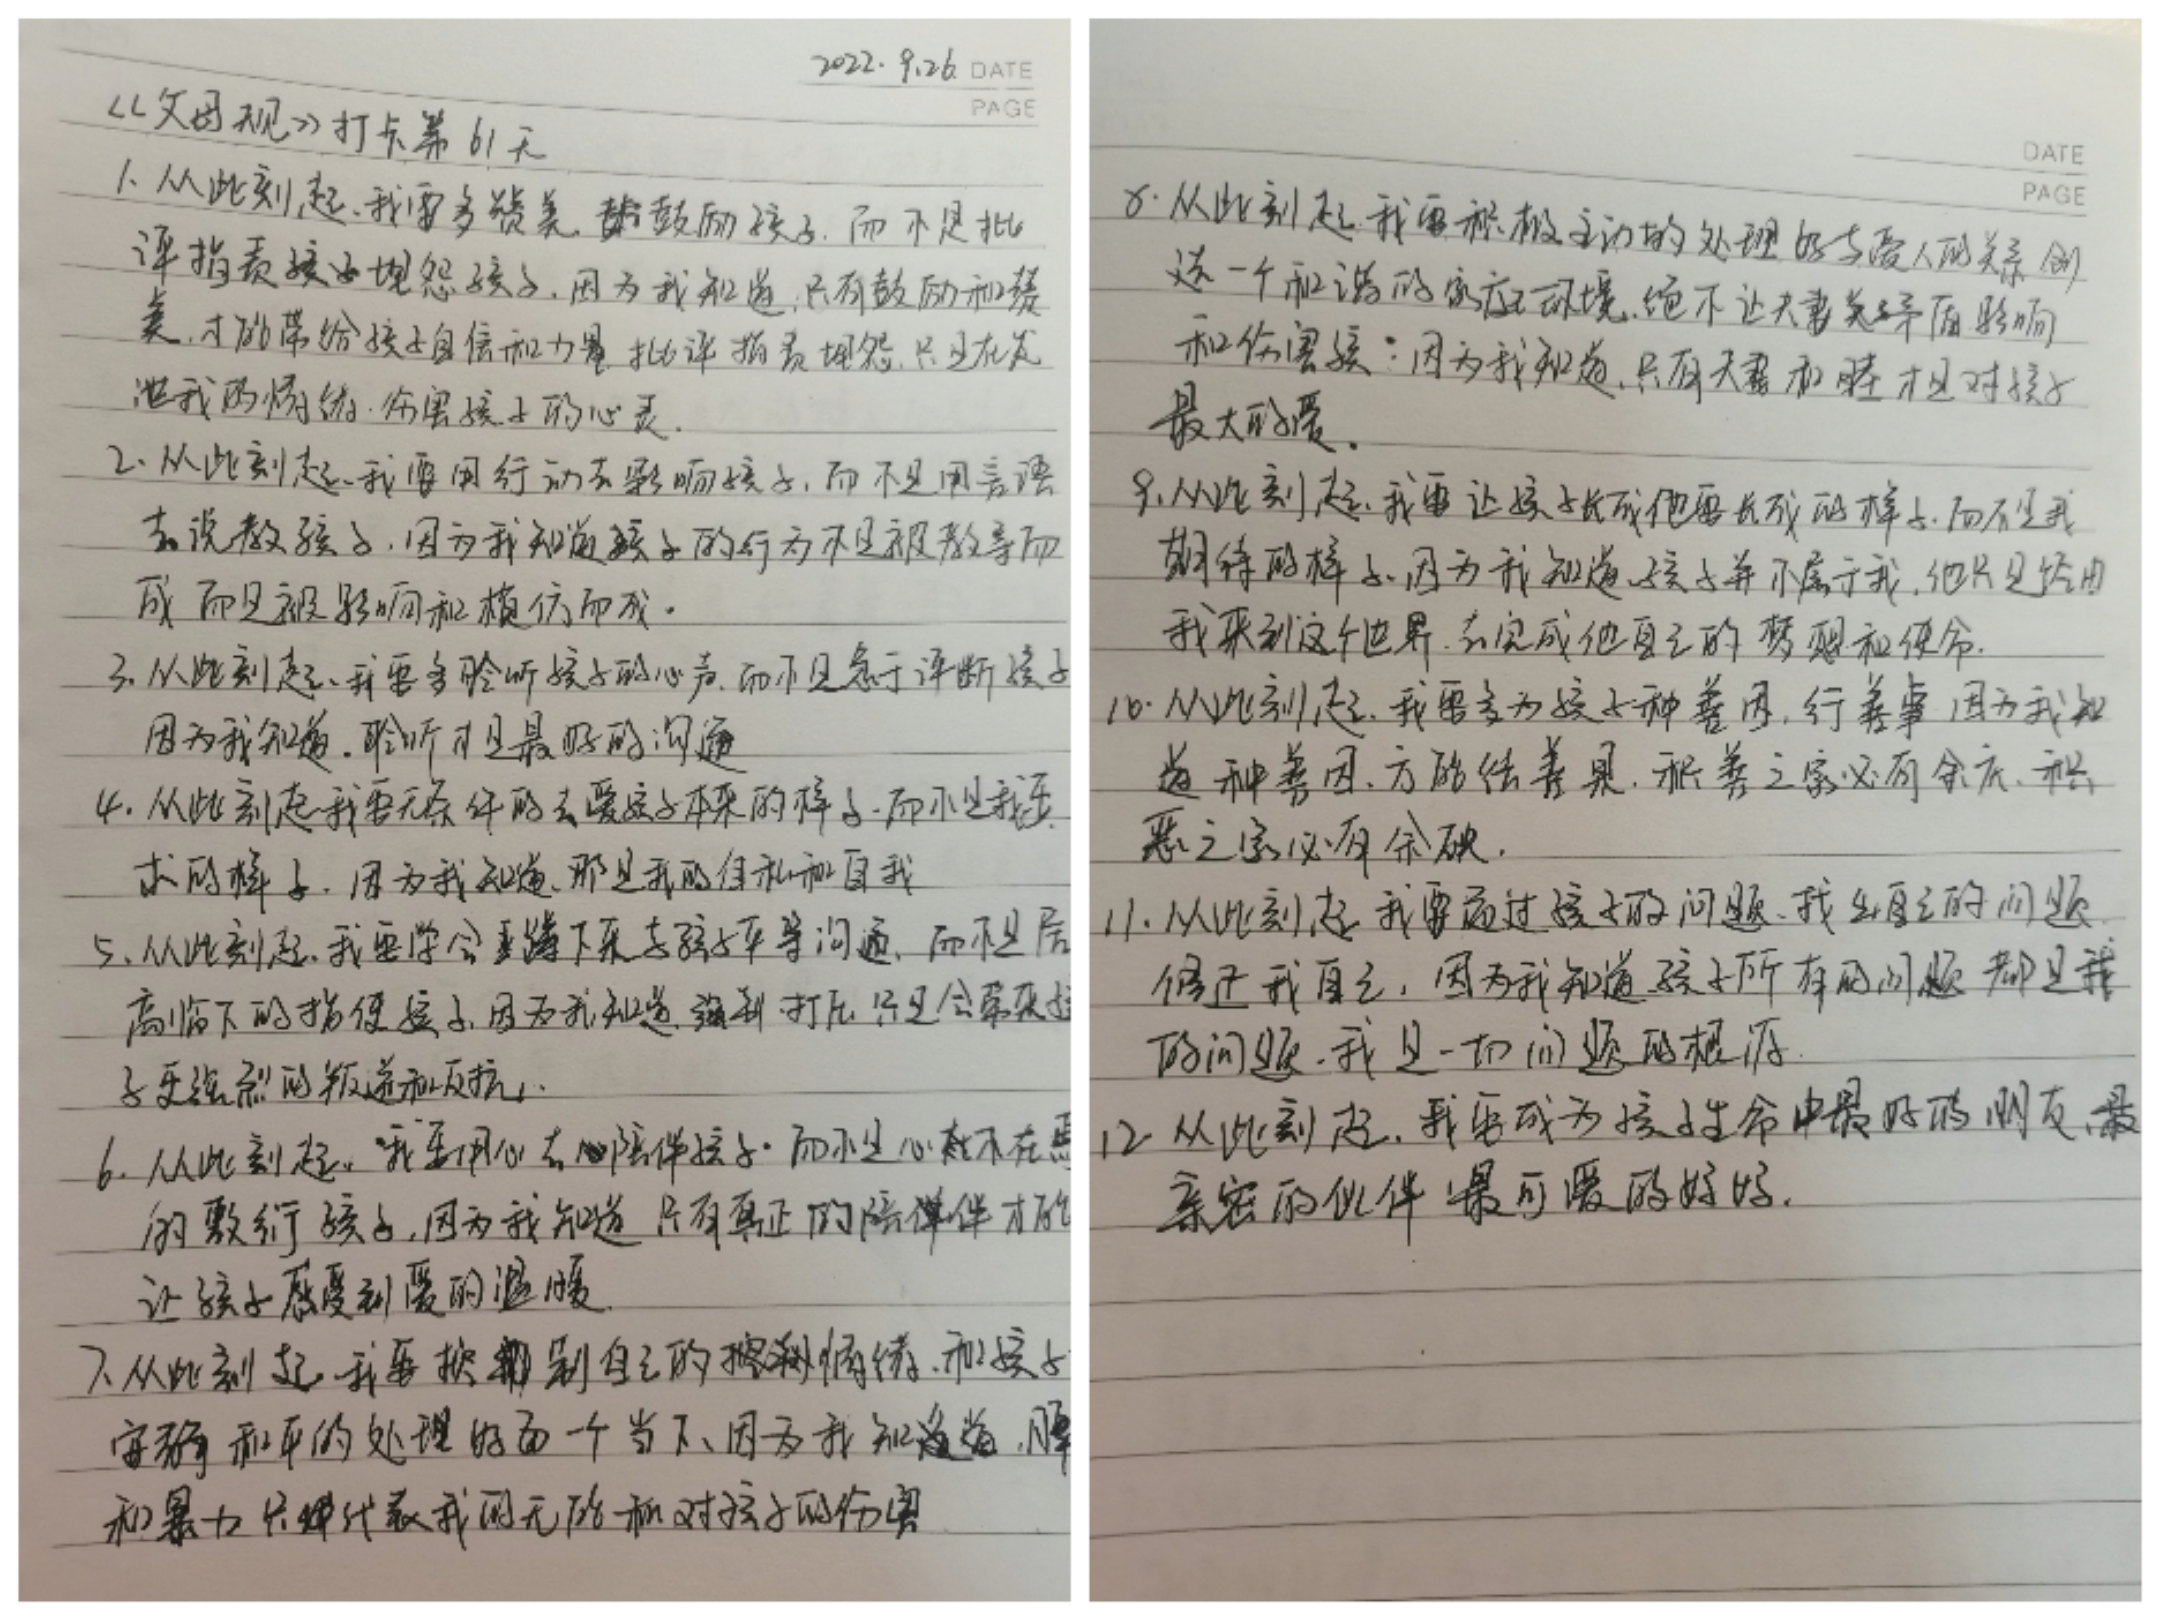 2022.9.26 DATE
PAGE
《父母规》打卡第61天
1.从此刻起、我要多赞美、鼓励孩子.而不是批
评指责孩子埋怨孩子.因为我知道.只有鼓励和赞
美.才能带给孩子自信和力量 批评指责埋怨.只是在发
泄我的情绪.伤害孩子的心灵.
2.从此刻起、我要用行动去影响孩子.而不是用言语
去说教孩子.因为我知道孩子的行为不是被教导而
成 而是被影响和模仿而成.
3.从此刻起、我要多聆听孩子的心声.而不是急于评断孩子
因为我知道.聆听才是最好的沟通
4.从此刻起 我要无条件的去爱孩子本来的样子.而不是我要
求的样子.因为我知道、那是我的自私和自我
5.从此刻起.我要学会蹲下来与孩子平等沟通.而不是居
高临下的指使孩子.因为我知道.强制打压 只是会带来孩
子更强烈的叛逆和反抗.
6.从此刻起.我要用心去陪伴孩子.而不是心不在焉
的敷衍孩子.因为我知道 只有真正的陪伴才能
让孩子感受到爱的温暖.
7.从此刻起.我要控制自己的情绪.和孩子
安静和平的处理好每一个当下、因为我知道.脾
和暴力只代表我的无能和对孩子的伤害
DATE
PAGE
8.从此刻起.我要积极主动的处理好与爱人的关系 创
造一个和谐的家庭环境.绝不让夫妻关矛盾影响
和伤害孩:因为我知道.只有夫妻和睦才是对孩子
最大的爱.
9.从此刻起.我要让孩子长成他要长成的样子.而不是我
期待的样子.因为我知道.孩子并不属于我.他只是经由
我来到这个世界.去完成他自己的梦想和使命.
10.从此刻起.我要多为孩子种善因.行善事 因为我知
道种善因.方能结善果.积善之家必有余庆.积
恶之家必有余殃.
11.从此刻起 我要通过孩子的问题.找出自己的问题.
修正我自己.因为我知道孩子所有的问题都是我
的问题.我是一切问题的根源.
12 从此刻起.我要成为孩子生命中最好的朋友、最
亲密的伙伴 最可爱的妈妈.